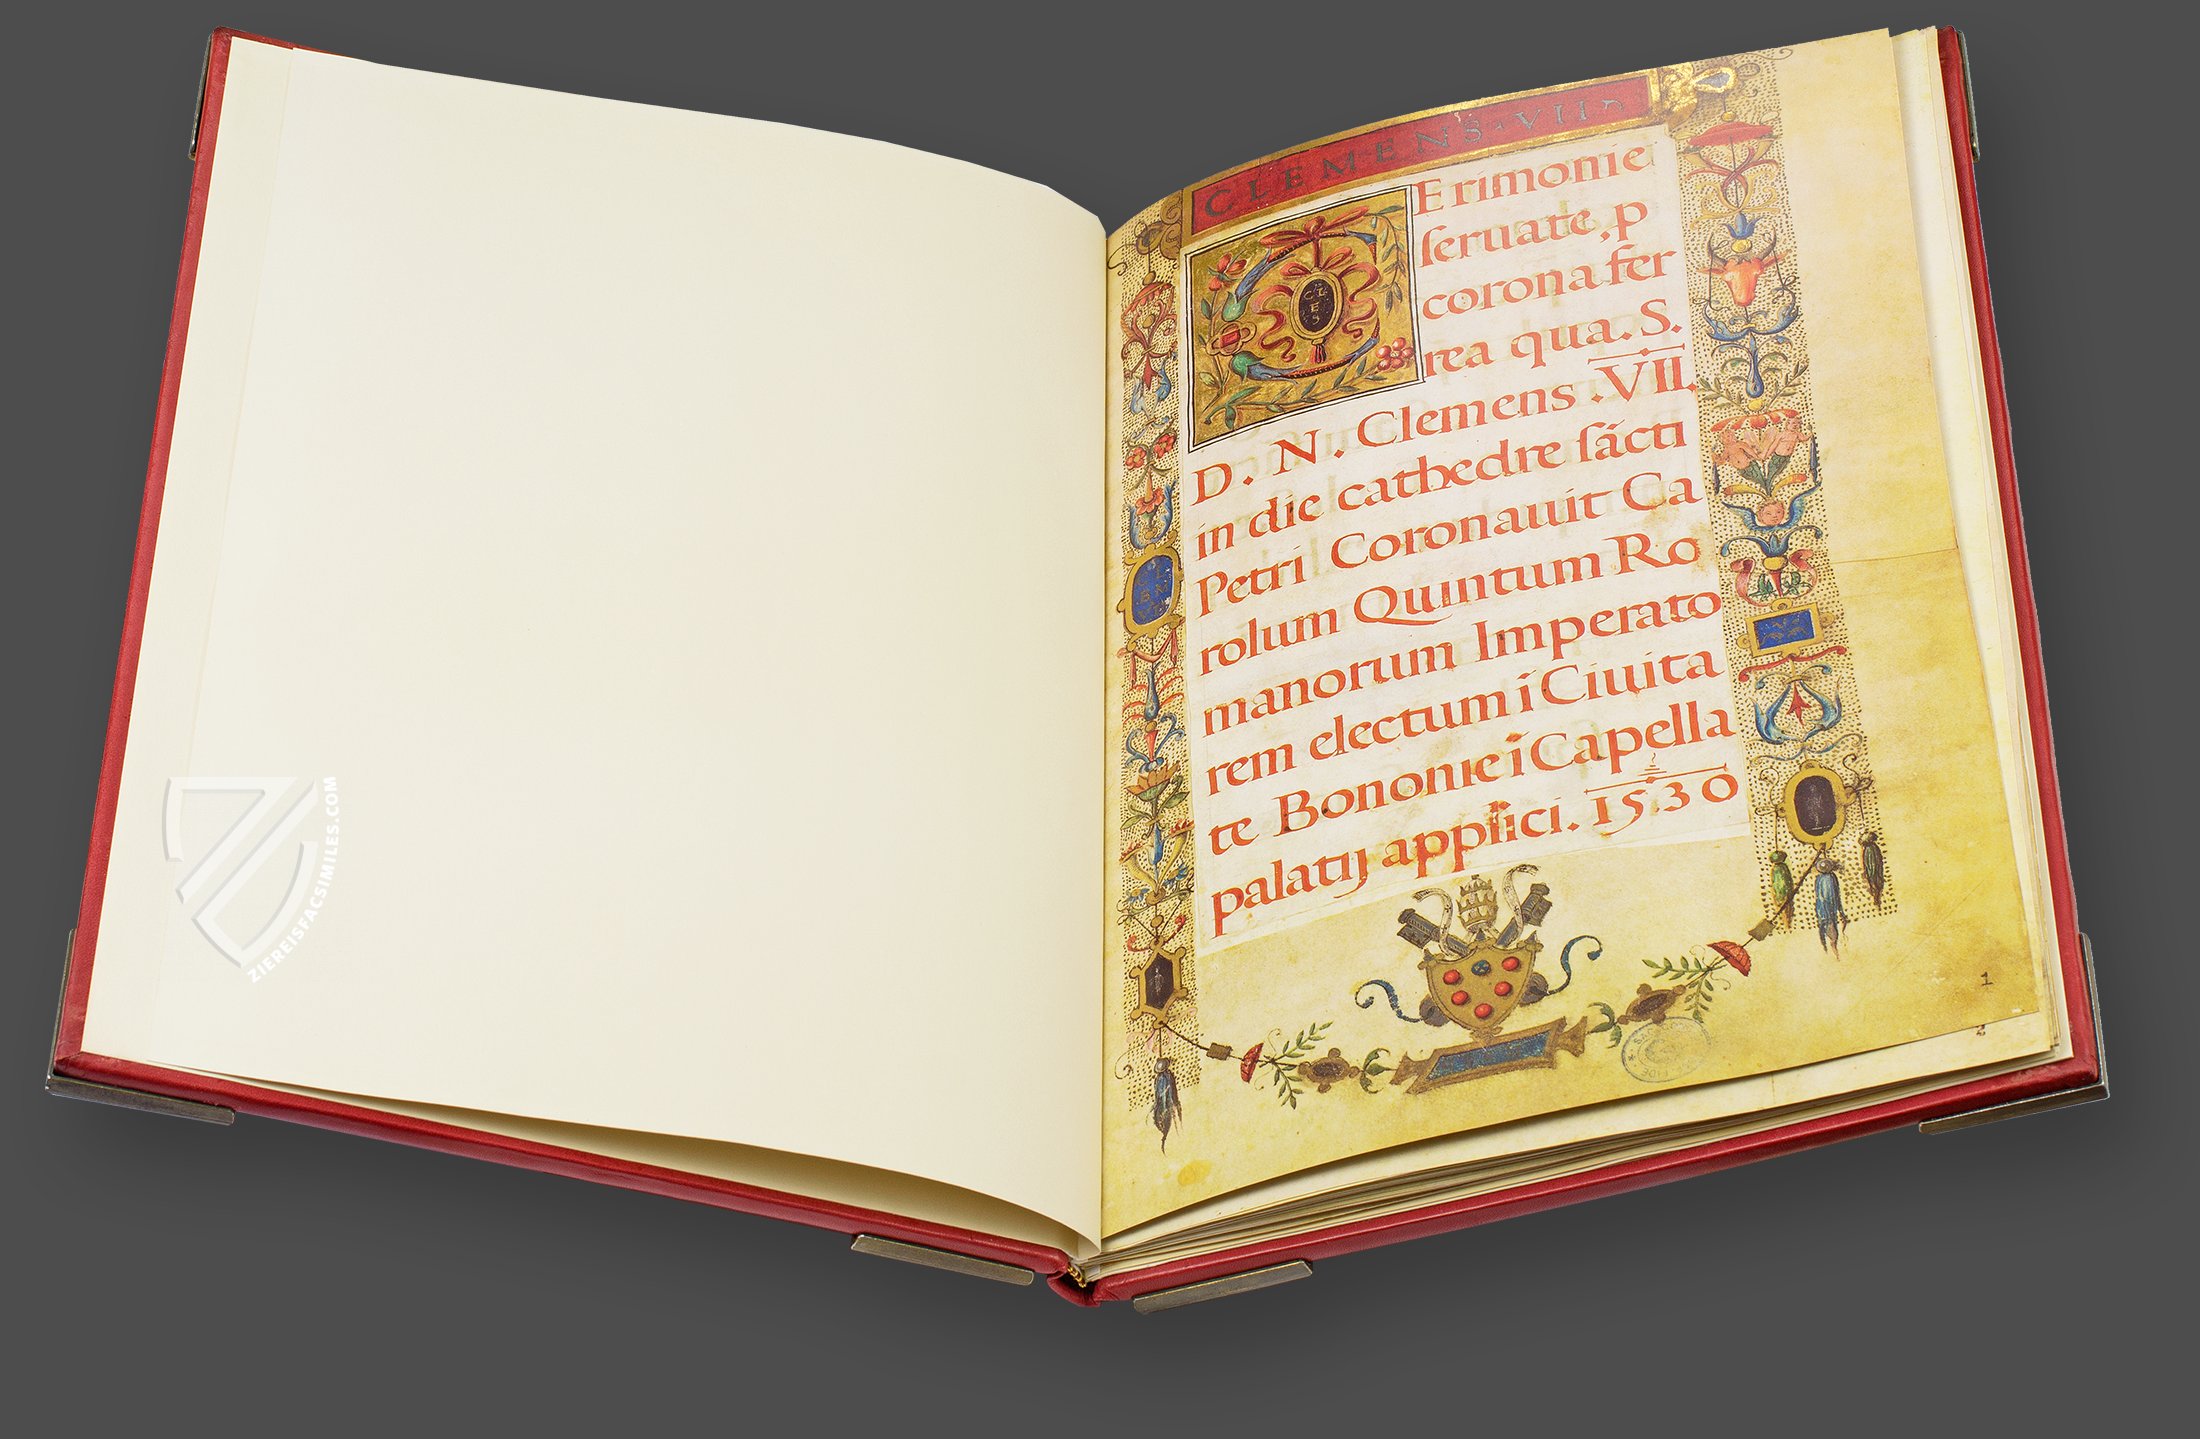 CLEMENS·VII
CErimonie
seruate, p
corona fer
rea qua. S.
D. N. Clemens .VII.
in die cathedre säcti
Petri Coronauit Ca
rolum Quintum Ro
manorum Imperato
rem electum i Ciuita
te Bononie i Capella
palatij appl̃ici. 1530
CLES
1
2
ZIEREISFACSIMILES.COM